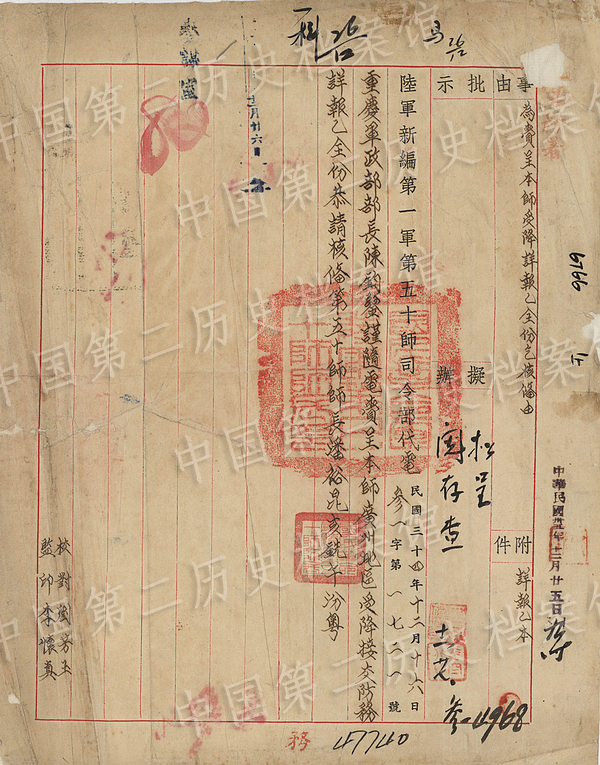 事由
為賫呈本師受降詳報乙全份乞核俻由
附件
詳報乙本
批示
擬辦
擬呈
閱存查
陸軍新編第一軍第五十師司令部代電
民國三十四年十二月十六日
參一字第一七二一號
重慶軍政部部長陳鈞鑒謹隨電賫呈本師廣州地區受降接交防務
詳報乙全份恭請核俻第五十師師長潘裕昆亥銑午汾粵
校對劉芳玉
監印李懷真
中華民國卅四年十二月廿五日
6919
參-4968
47740
务
中国第二历史档案馆